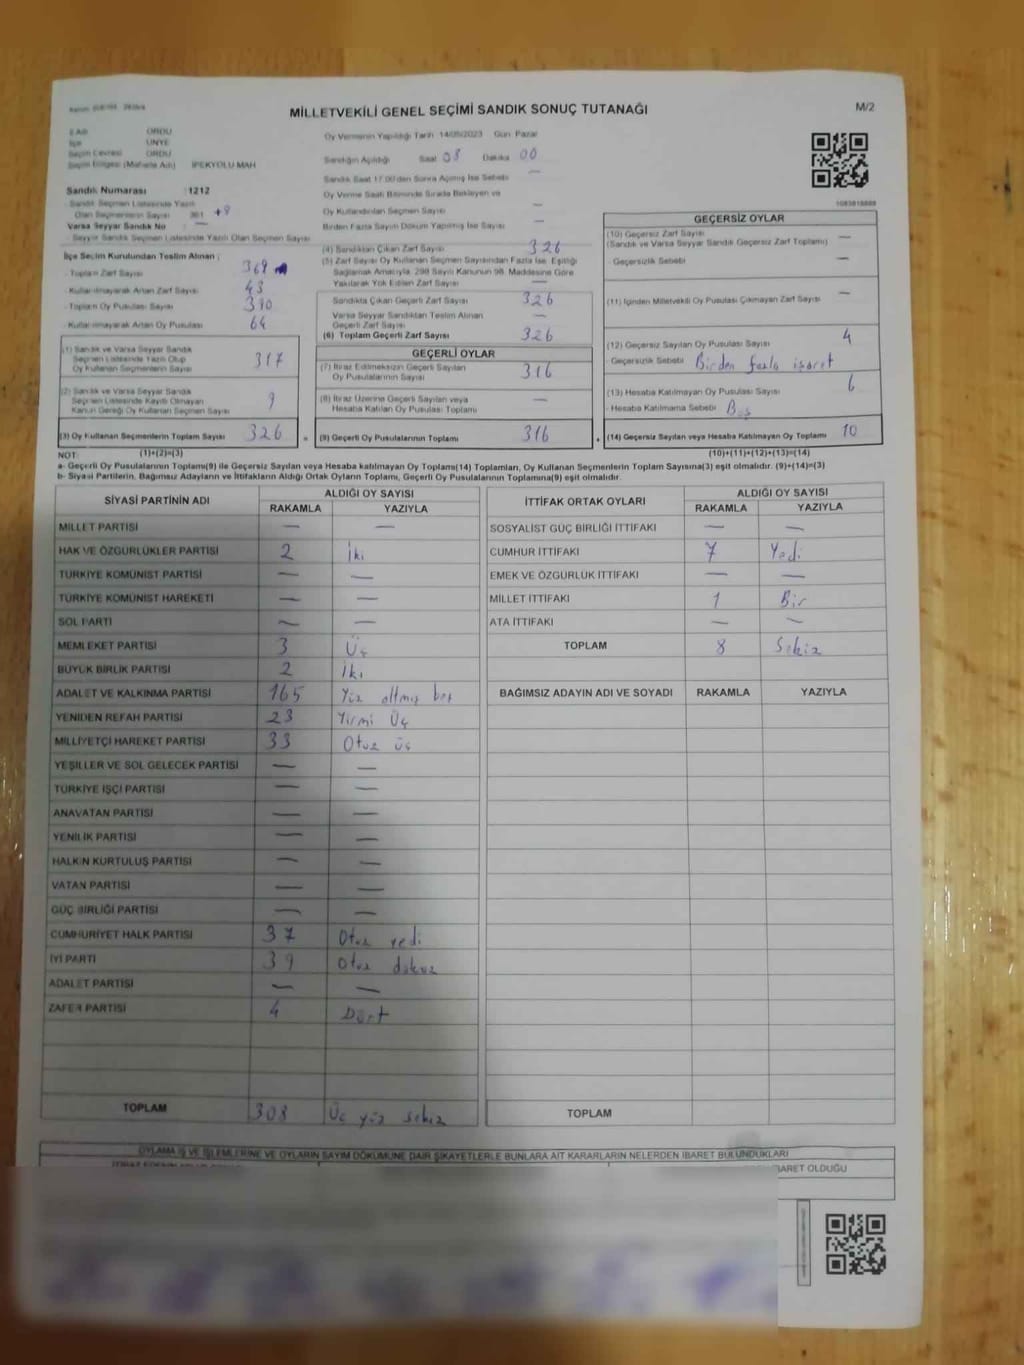 MİLLETVEKİLİ GENEL SEÇİMİ SANDIK SONUÇ TUTANAĞI
M/2
İl Adı ORDU
İlçe ÜNYE
Seçim Çevresi ORDU
Seçim Bölgesi (Mahalle Adı) İPEKYOLU MAH
Sandık Numarası : 1212
Sandık Seçmen Listesinde Yazılı
Olan Seçmenlerin Sayısı 361 +9
Varsa Seyyar Sandık No —
Seyyar Sandık Seçmen Listesinde Yazılı Olan Seçmen Sayısı
İlçe Seçim Kurulundan Teslim Alınan ;
- Toplam Zarf Sayısı 369
- Kullanılmayarak Artan Zarf Sayısı 43
- Toplam Oy Pusulası Sayısı 390
- Kullanılmayarak Artan Oy Pusulası 64
(1) Sandık ve Varsa Seyyar Sandık
Seçmen Listesinde Yazılı Olup
Oy Kullanan Seçmenlerin Sayısı 317
(2) Sandık ve Varsa Seyyar Sandık
Seçmen Listesinde Kayıtlı Olmayan
Kanun Gereği Oy Kullanan Seçmen Sayısı 9
(3) Oy Kullanan Seçmenlerin Toplam Sayısı 326
Oy Vermenin Yapıldığı Tarih 14/05/2023 Gün Pazar
Sandığın Açıldığı Saat 08 Dakika 00
Sandık Saat 17:00'den Sonra Açılmış İse Sebebi —
Oy Verme Saati Bitiminde Sırada Bekleyen ve
Oy Kullandırılan Seçmen Sayısı —
Birden Fazla Sayım Döküm Yapılmış İse Sayısı —
(4) Sandıktan Çıkan Zarf Sayısı 326
(5) Zarf Sayısı Oy Kullanan Seçmen Sayısından Fazla İse, Eşitliği
Sağlamak Amacıyla, 298 Sayılı Kanunun 98. Maddesine Göre
Yakılarak Yok Edilen Zarf Sayısı —
Sandıkta Çıkan Geçerli Zarf Sayısı 326
Varsa Seyyar Sandıktan Teslim Alınan
Geçerli Zarf Sayısı —
(6) Toplam Geçerli Zarf Sayısı 326
GEÇERLİ OYLAR
(7) İtiraz Edilmeksizin Geçerli Sayılan
Oy Pusulalarının Sayısı 316
(8) İtiraz Üzerine Geçerli Sayılan veya
Hesaba Katılan Oy Pusulası Toplamı —
(9) Geçerli Oy Pusulalarının Toplamı 316
GEÇERSİZ OYLAR
(10) Geçersiz Zarf Sayısı —
(Sandık ve Varsa Seyyar Sandık Geçersiz Zarf Toplamı)
Geçersizlik Sebebi —
(11) İçinden Milletvekili Oy Pusulası Çıkmayan Zarf Sayısı —
(12) Geçersiz Sayılan Oy Pusulası Sayısı 4
Geçersizlik Sebebi Birden fazla işaret
(13) Hesaba Katılmayan Oy Pusulası Sayısı 6
- Hesaba Katılmama Sebebi Boş
(14) Geçersiz Sayılan veya Hesaba Katılmayan Oy Toplamı 10
NOT: (1)+(2)=(3) (10)+(11)+(12)+(13)=(14)
a- Geçerli Oy Pusulalarının Toplamı(9) ile Geçersiz Sayılan veya Hesaba katılmayan Oy Toplamı(14) Toplamları, Oy Kullanan Seçmenlerin Toplam Sayısına(3) eşit olmalıdır. (9)+(14)=(3)
b- Siyasi Partilerin, Bağımsız Adayların ve İttifakların Aldığı Ortak Oyların Toplamı, Geçerli Oy Pusulalarının Toplamına(9) eşit olmalıdır.
SİYASİ PARTİNİN ADI ALDIĞI OY SAYISI
RAKAMLA YAZIYLA
MİLLET PARTİSİ — —
HAK VE ÖZGÜRLÜKLER PARTİSİ 2 İki
TÜRKİYE KOMÜNİST PARTİSİ — —
TÜRKİYE KOMÜNİST HAREKETİ — —
SOL PARTİ — —
MEMLEKET PARTİSİ 3 Üç
BÜYÜK BİRLİK PARTİSİ 2 İki
ADALET VE KALKINMA PARTİSİ 165 Yüz altmış beş
YENİDEN REFAH PARTİSİ 23 Yirmi Üç
MİLLİYETÇİ HAREKET PARTİSİ 33 Otuz üç
YEŞİLLER VE SOL GELECEK PARTİSİ — —
TÜRKİYE İŞÇİ PARTİSİ — —
ANAVATAN PARTİSİ — —
YENİLİK PARTİSİ — —
HALKIN KURTULUŞ PARTİSİ — —
VATAN PARTİSİ — —
GÜÇ BİRLİĞİ PARTİSİ — —
CUMHURİYET HALK PARTİSİ 37 Otuz yedi
İYİ PARTİ 39 Otuz dokuz
ADALET PARTİSİ — —
ZAFER PARTİSİ 4 Dört
TOPLAM 308 Üç yüz sekiz
İTTİFAK ORTAK OYLARI ALDIĞI OY SAYISI
RAKAMLA YAZIYLA
SOSYALİST GÜÇ BİRLİĞİ İTTİFAKI — —
CUMHUR İTTİFAKI 7 Yedi
EMEK VE ÖZGÜRLÜK İTTİFAKI — —
MİLLET İTTİFAKI 1 Bir
ATA İTTİFAKI — —
TOPLAM 8 Sekiz
BAĞIMSIZ ADAYIN ADI VE SOYADI RAKAMLA YAZIYLA
TOPLAM
OYLAMA İŞ VE İŞLEMLERİNE VE OYLARIN SAYIM DÖKÜMÜNE DAİR ŞİKAYETLERLE BUNLARA AİT KARARLARIN NELERDEN İBARET BULUNDUKLARI
BARET OLDUĞU